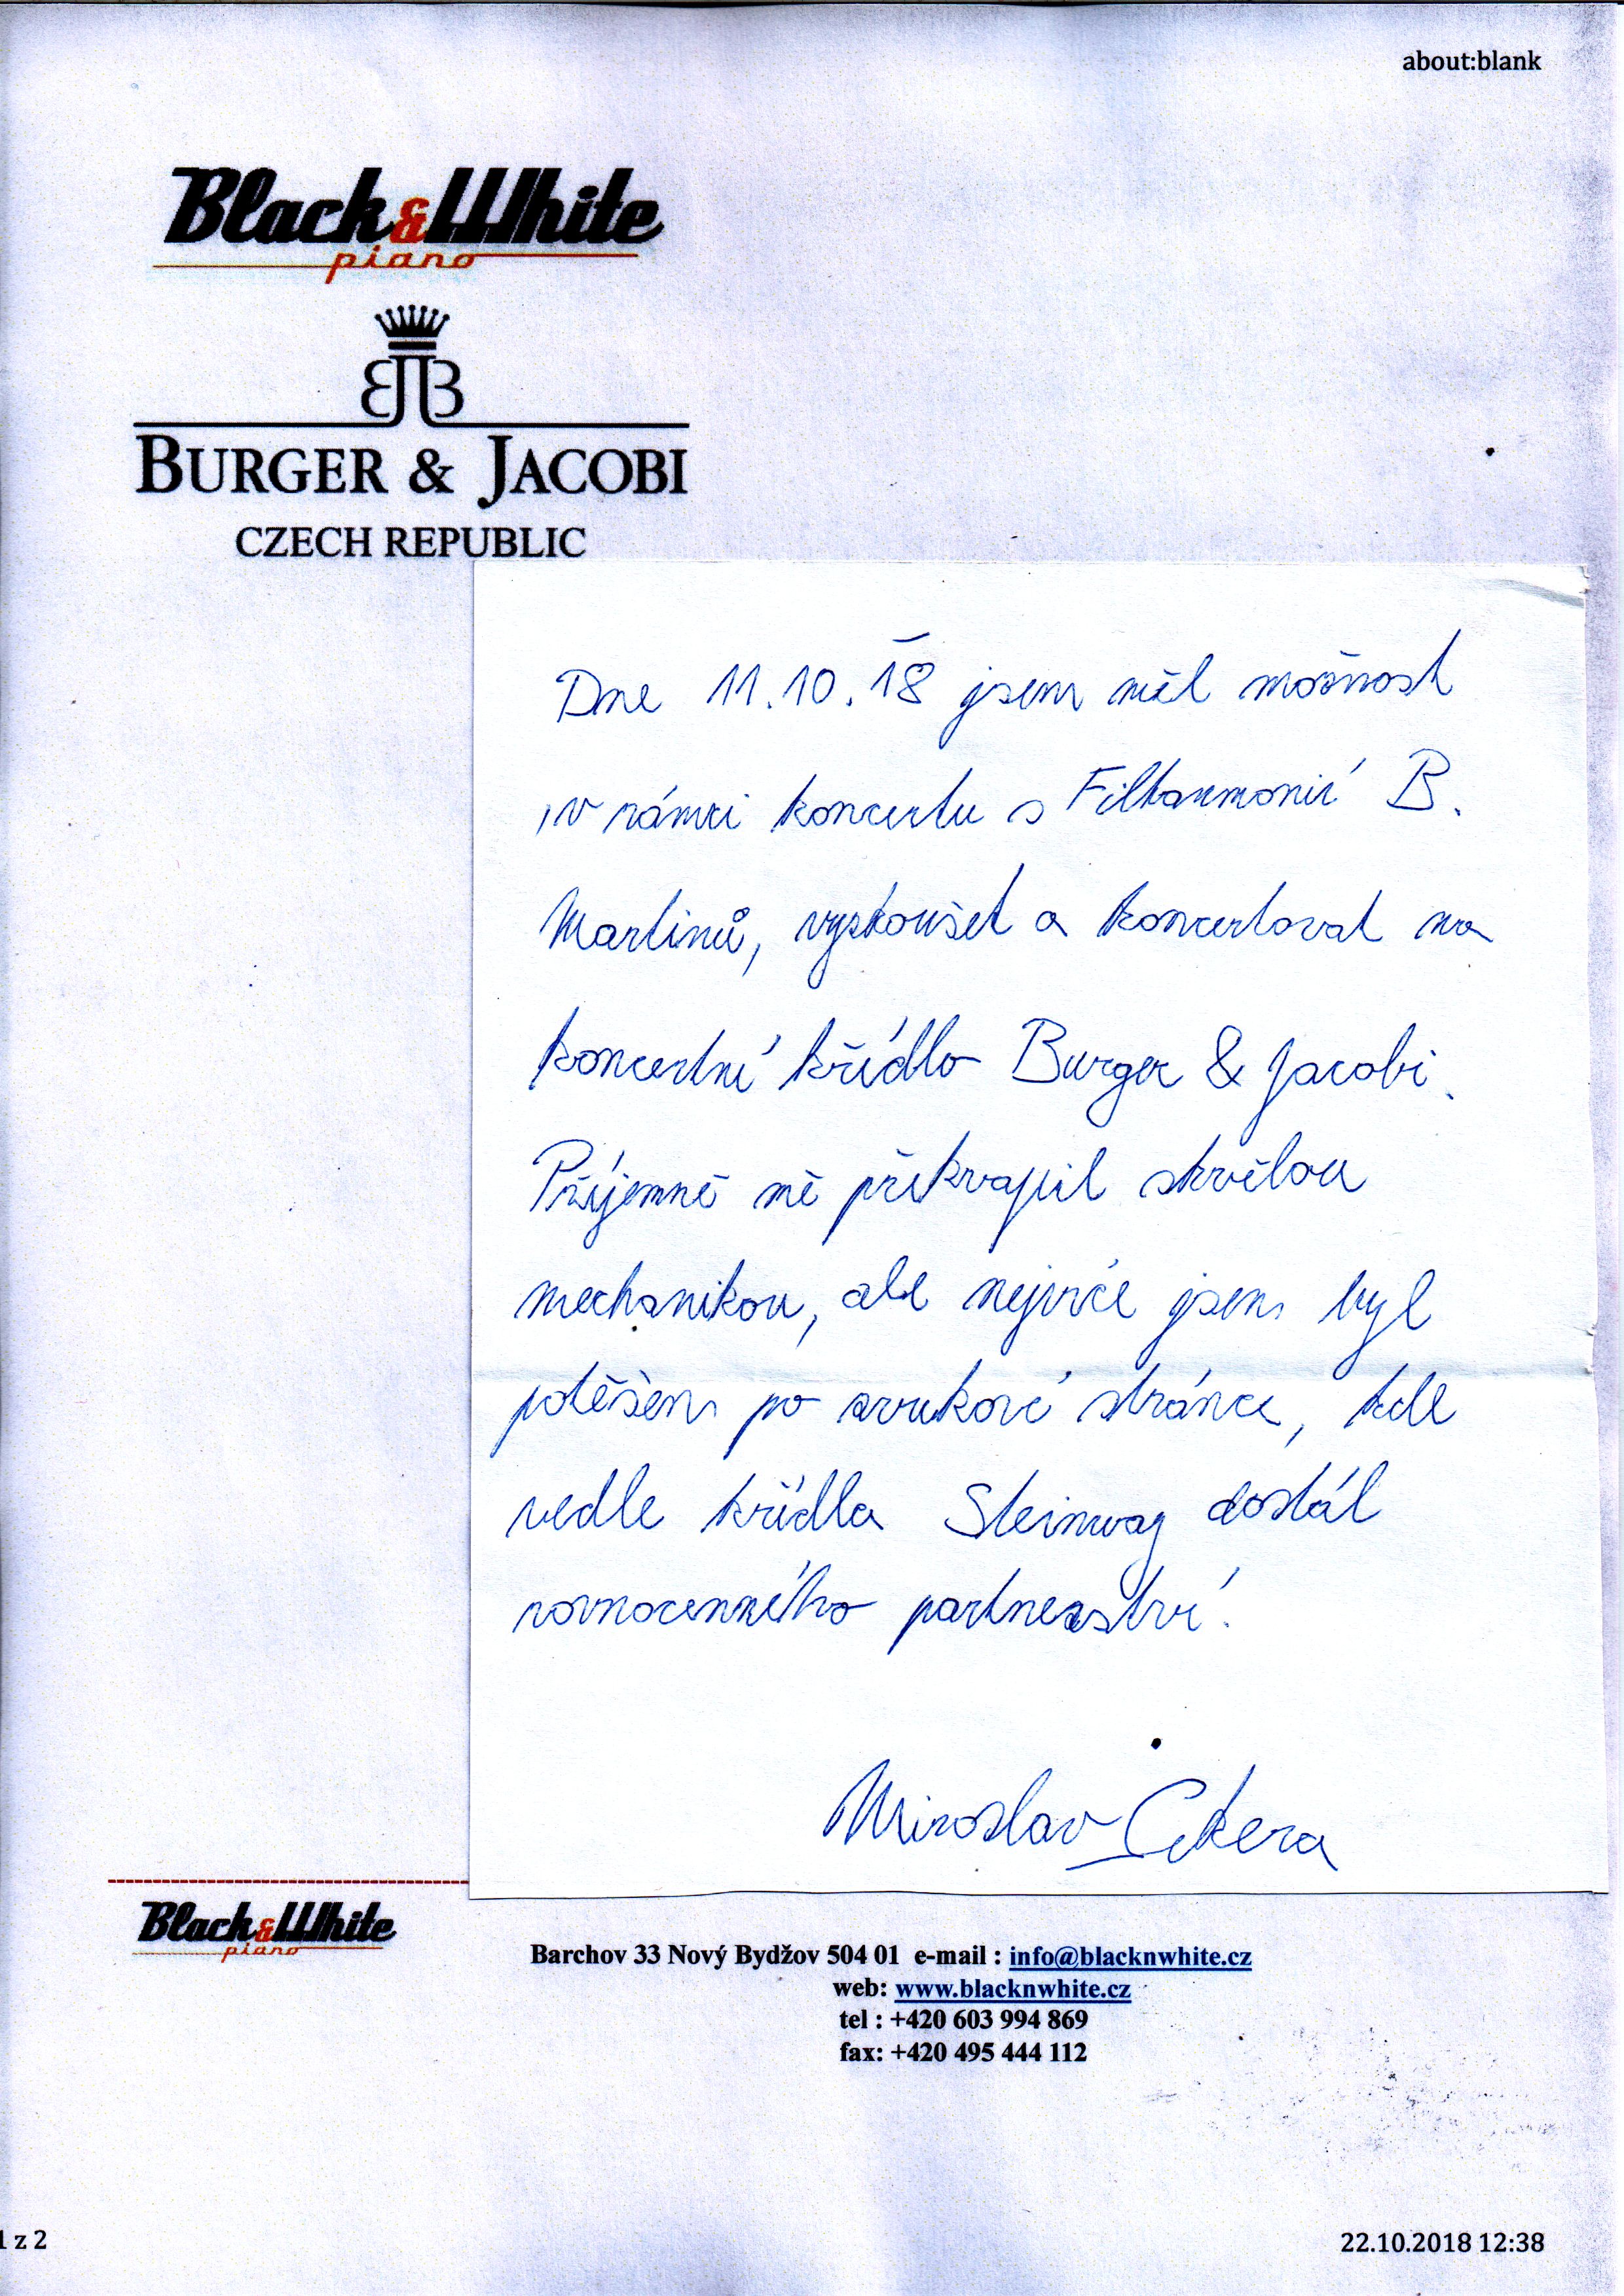 about:blank
Black&White
piano
BJB
BURGER & JACOBI
CZECH REPUBLIC
Dne 11.10.18 jsem měl možnost
v rámci koncertu s Filharmonií B.
Martinů, vyzkoušet a koncertovat na
koncertní křídlo Burger & Jacobi.
Příjemně mě překvapil skvělou
mechanikou, ale nejvíce jsem byl
potěšen po zvukové stránce, kde
vedle křídla Steinway dostál
rovnocenného partnerství.
Miroslav Sekera
Black&White
piano
Barchov 33 Nový Bydžov 504 01 e-mail : info@blacknwhite.cz
web: www.blacknwhite.cz
tel : +420 603 994 869
fax: +420 495 444 112
1 z 2
22.10.2018 12:38